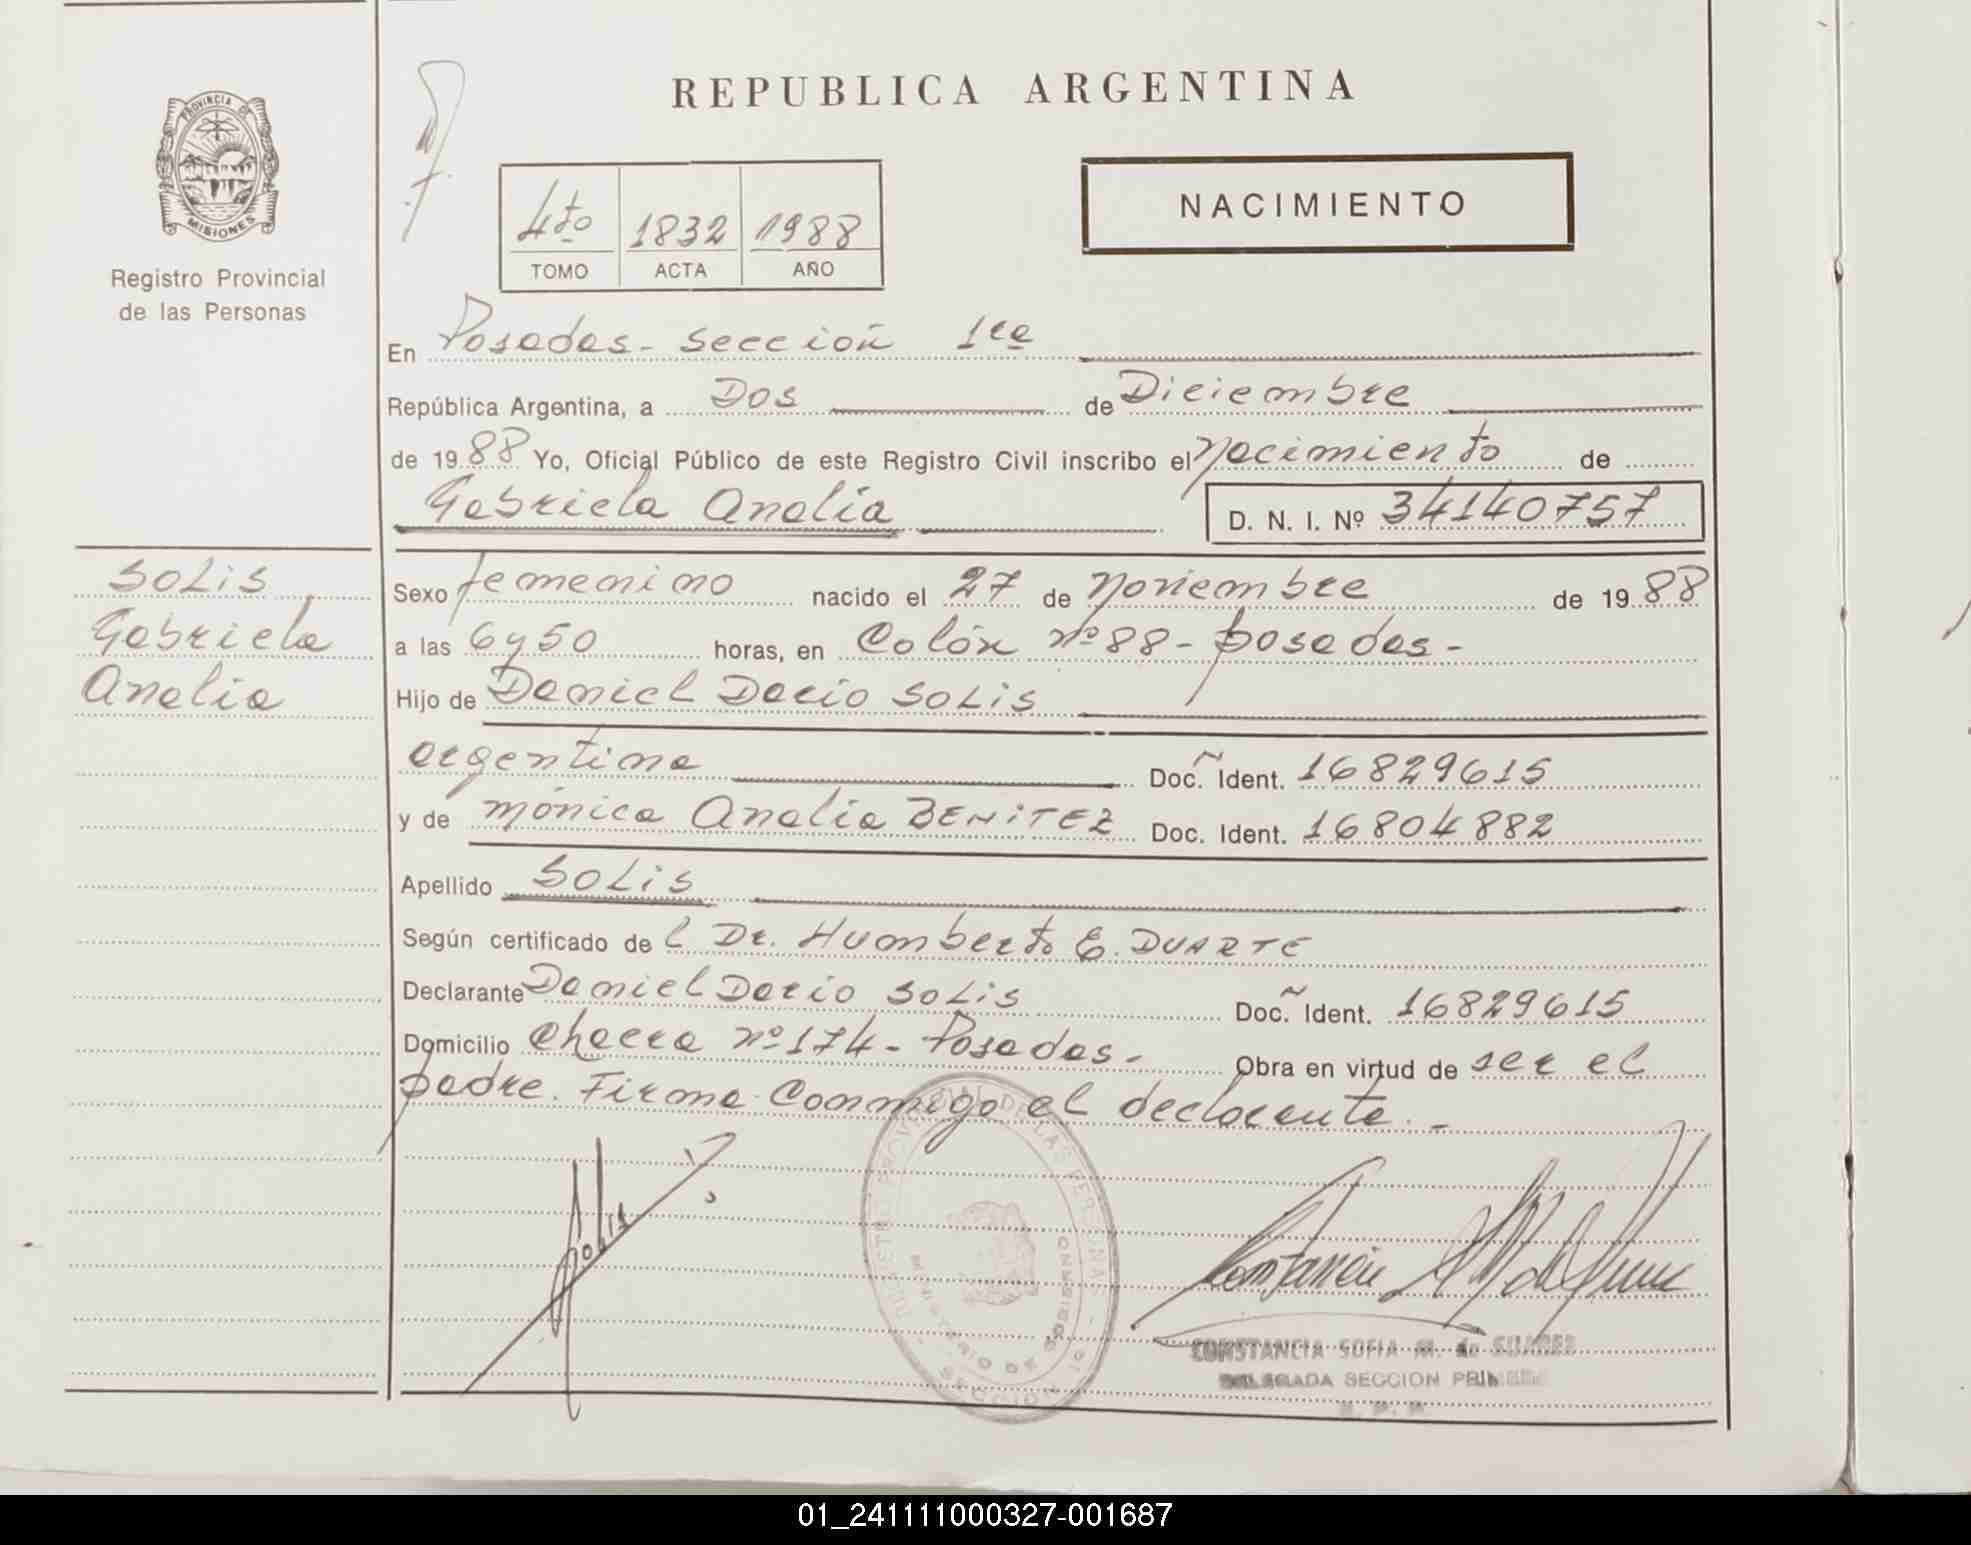 PROVINCIA DE
MISIONES
Registro Provincial
de las Personas
REPUBLICA ARGENTINA
4to 1832 1988
TOMO ACTA AÑO
NACIMIENTO
En Posadas - Sección 1ra
República Argentina, a Dos de Diciembre
de 1988 Yo, Oficial Público de este Registro Civil inscribo el Nacimiento de
Gabriela Analía D. N. I. Nº 34140757
SOLiS
Gabriela
Analia
Sexo femenino nacido el 27 de Noviembre de 1988
a las 6 y 50 horas, en Colón nº 88 - posadas -
Hijo de Daniel Dario SOLiS
argentina Doc. Ident. 16829615
y de Mónica Analia BENiTEZ Doc. Ident. 16804882
Apellido SOLiS
Según certificado de l Dr. Humberto E. DUARTE
Declarante Daniel Dario SOLiS Doc. Ident. 16829615
Domicilio Chacra nº 174 - Posadas - Obra en virtud de ser el
padre. Firma Conmigo el declarante. -
Solis
CONSTANCIA SOFIA M. de SUAREZ
DELEGADA SECCION PRIMERA
01_241111000327-001687